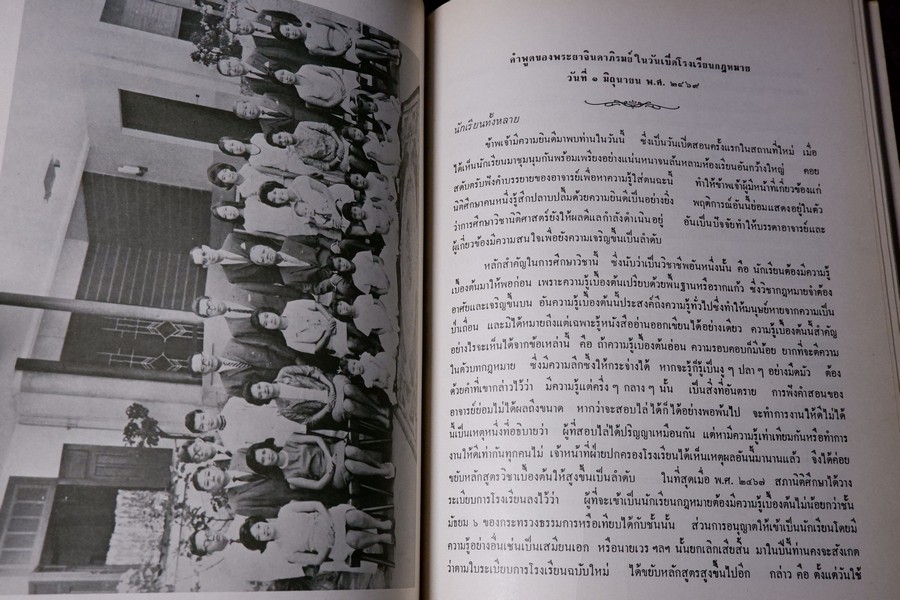 คำพูดของพระยาจินดาภิรมย์ ในวันเปิดโรงเรียนกฎหมาย
วันที่ ๑ มิถุนายน พ.ศ. ๒๔๖๙
นักเรียนทั้งหลาย
ข้าพเจ้ามีความยินดีมาพบท่านในวันนี้ ซึ่งเป็นวันเปิดสอนครั้งแรกในสถานที่ใหม่ เมื่อ
ได้เห็นนักเรียนมาชุมนุมกันพร้อมเพรียงอย่างแน่นหนาจนล้นหลามห้องเรียนอันกว้างใหญ่ คอย
สดับตรับฟังคำบรรยายของอาจารย์เพื่อหาความรู้ใส่ตนฉะนี้ ทำให้ข้าพเจ้าผู้มีหน้าที่เกี่ยวข้องแก่
นิติศึกษาคนหนึ่งรู้สึกปลาบปลื้มด้วยความยินดีเป็นอย่างยิ่ง พฤติการณ์อันนี้ย่อมแสดงอยู่ในตัว
ว่าการศึกษาวิชานิติศาสตร์ยังให้ผลดีแลกำลังดำเนินอยู่ อันเป็นปัจจัยทำให้บรรดาอาจารย์และ
ผู้เกี่ยวข้องมีความสนใจเพื่อยังความเจริญขึ้นเป็นลำดับ
หลักสำคัญในการศึกษาวิชานี้ ซึ่งนับว่าเป็นวิชาชีพอันหนึ่งนั้น คือ นักเรียนต้องมีความรู้
เบื้องต้นมาให้พอก่อน เพราะความรู้เบื้องต้นเปรียบด้วยพื้นฐานหรือรากแก้ว ซึ่งวิชากฎหมายจำต้อง
อาศัยและเจริญขึ้นบน อันความรู้เบื้องต้นนี้ประสงค์ถึงความรู้ทั่วไปซึ่งทำให้มนุษย์หายจากความเป็น
ป่าเถื่อน และมิได้หมายถึงแต่เฉพาะรู้หนังสืออ่านออกเขียนได้อย่างเดียว ความรู้เบื้องต้นนี้สำคัญ
อย่างไรจะเห็นได้จากข้อเหล่านี้ คือ ถ้าความรู้เบื้องต้นอ่อน ความรอบคอบก็มีน้อย ยากที่จะตีความ
ในตัวบทกฎหมาย ซึ่งมีความลึกซึ้งให้กระจ่างได้ หากจะรู้ก็รู้เป็นงู ๆ ปลา ๆ อย่างมืดมัว ต้อง
ด้วยคำที่เขากล่าวไว้ว่า มีความรู้แต่ครึ่ง ๆ กลาง ๆ นั้น เป็นสิ่งที่อันตราย การฟังคำสอนของ
อาจารย์ย่อมไม่ได้ผลถึงขนาด หากว่าจะสอบไล่ได้ก็ได้อย่างพอพ้นไป จะทำการงานให้ดีไม่ได้
นี้เป็นเหตุหนึ่งที่อธิบายว่า ผู้ที่สอบไล่ได้ปริญญาเหมือนกัน แต่หามีความรู้เท่าเทียมกันหรือทำการ
งานให้ดีเท่ากันทุกคนไม่ เจ้าหน้าที่ฝ่ายปกครองโรงเรียนได้เห็นเหตุผลอันนี้มานานแล้ว จึงได้ค่อย
ขยับหลักสูตรวิชาเบื้องต้นให้สูงขึ้นเป็นลำดับ ในที่สุดเมื่อ พ.ศ. ๒๔๖๗ สภานิติศึกษาได้วาง
ระเบียบการโรงเรียนลงไว้ว่า ผู้ที่จะเข้าเป็นนักเรียนกฎหมายต้องมีความรู้เบื้องต้นไม่น้อยกว่าชั้น
มัธยม ๖ ของกระทรวงธรรมการหรือเทียบได้กับชั้นนั้น ส่วนการอนุญาตให้เข้าเป็นนักเรียนโดยมี
ความรู้อย่างอื่นเช่นเป็นเสมียนเอก หรือนายเวร ฯลฯ นั้นยกเลิกเสียสิ้น มาในปีนี้ท่านคงจะสังเกต
ว่าตามใบระเบียบการโรงเรียนฉบับใหม่ ได้ขยับหลักสูตรสูงขึ้นไปอีก กล่าว คือ ตั้งแต่วันใช้